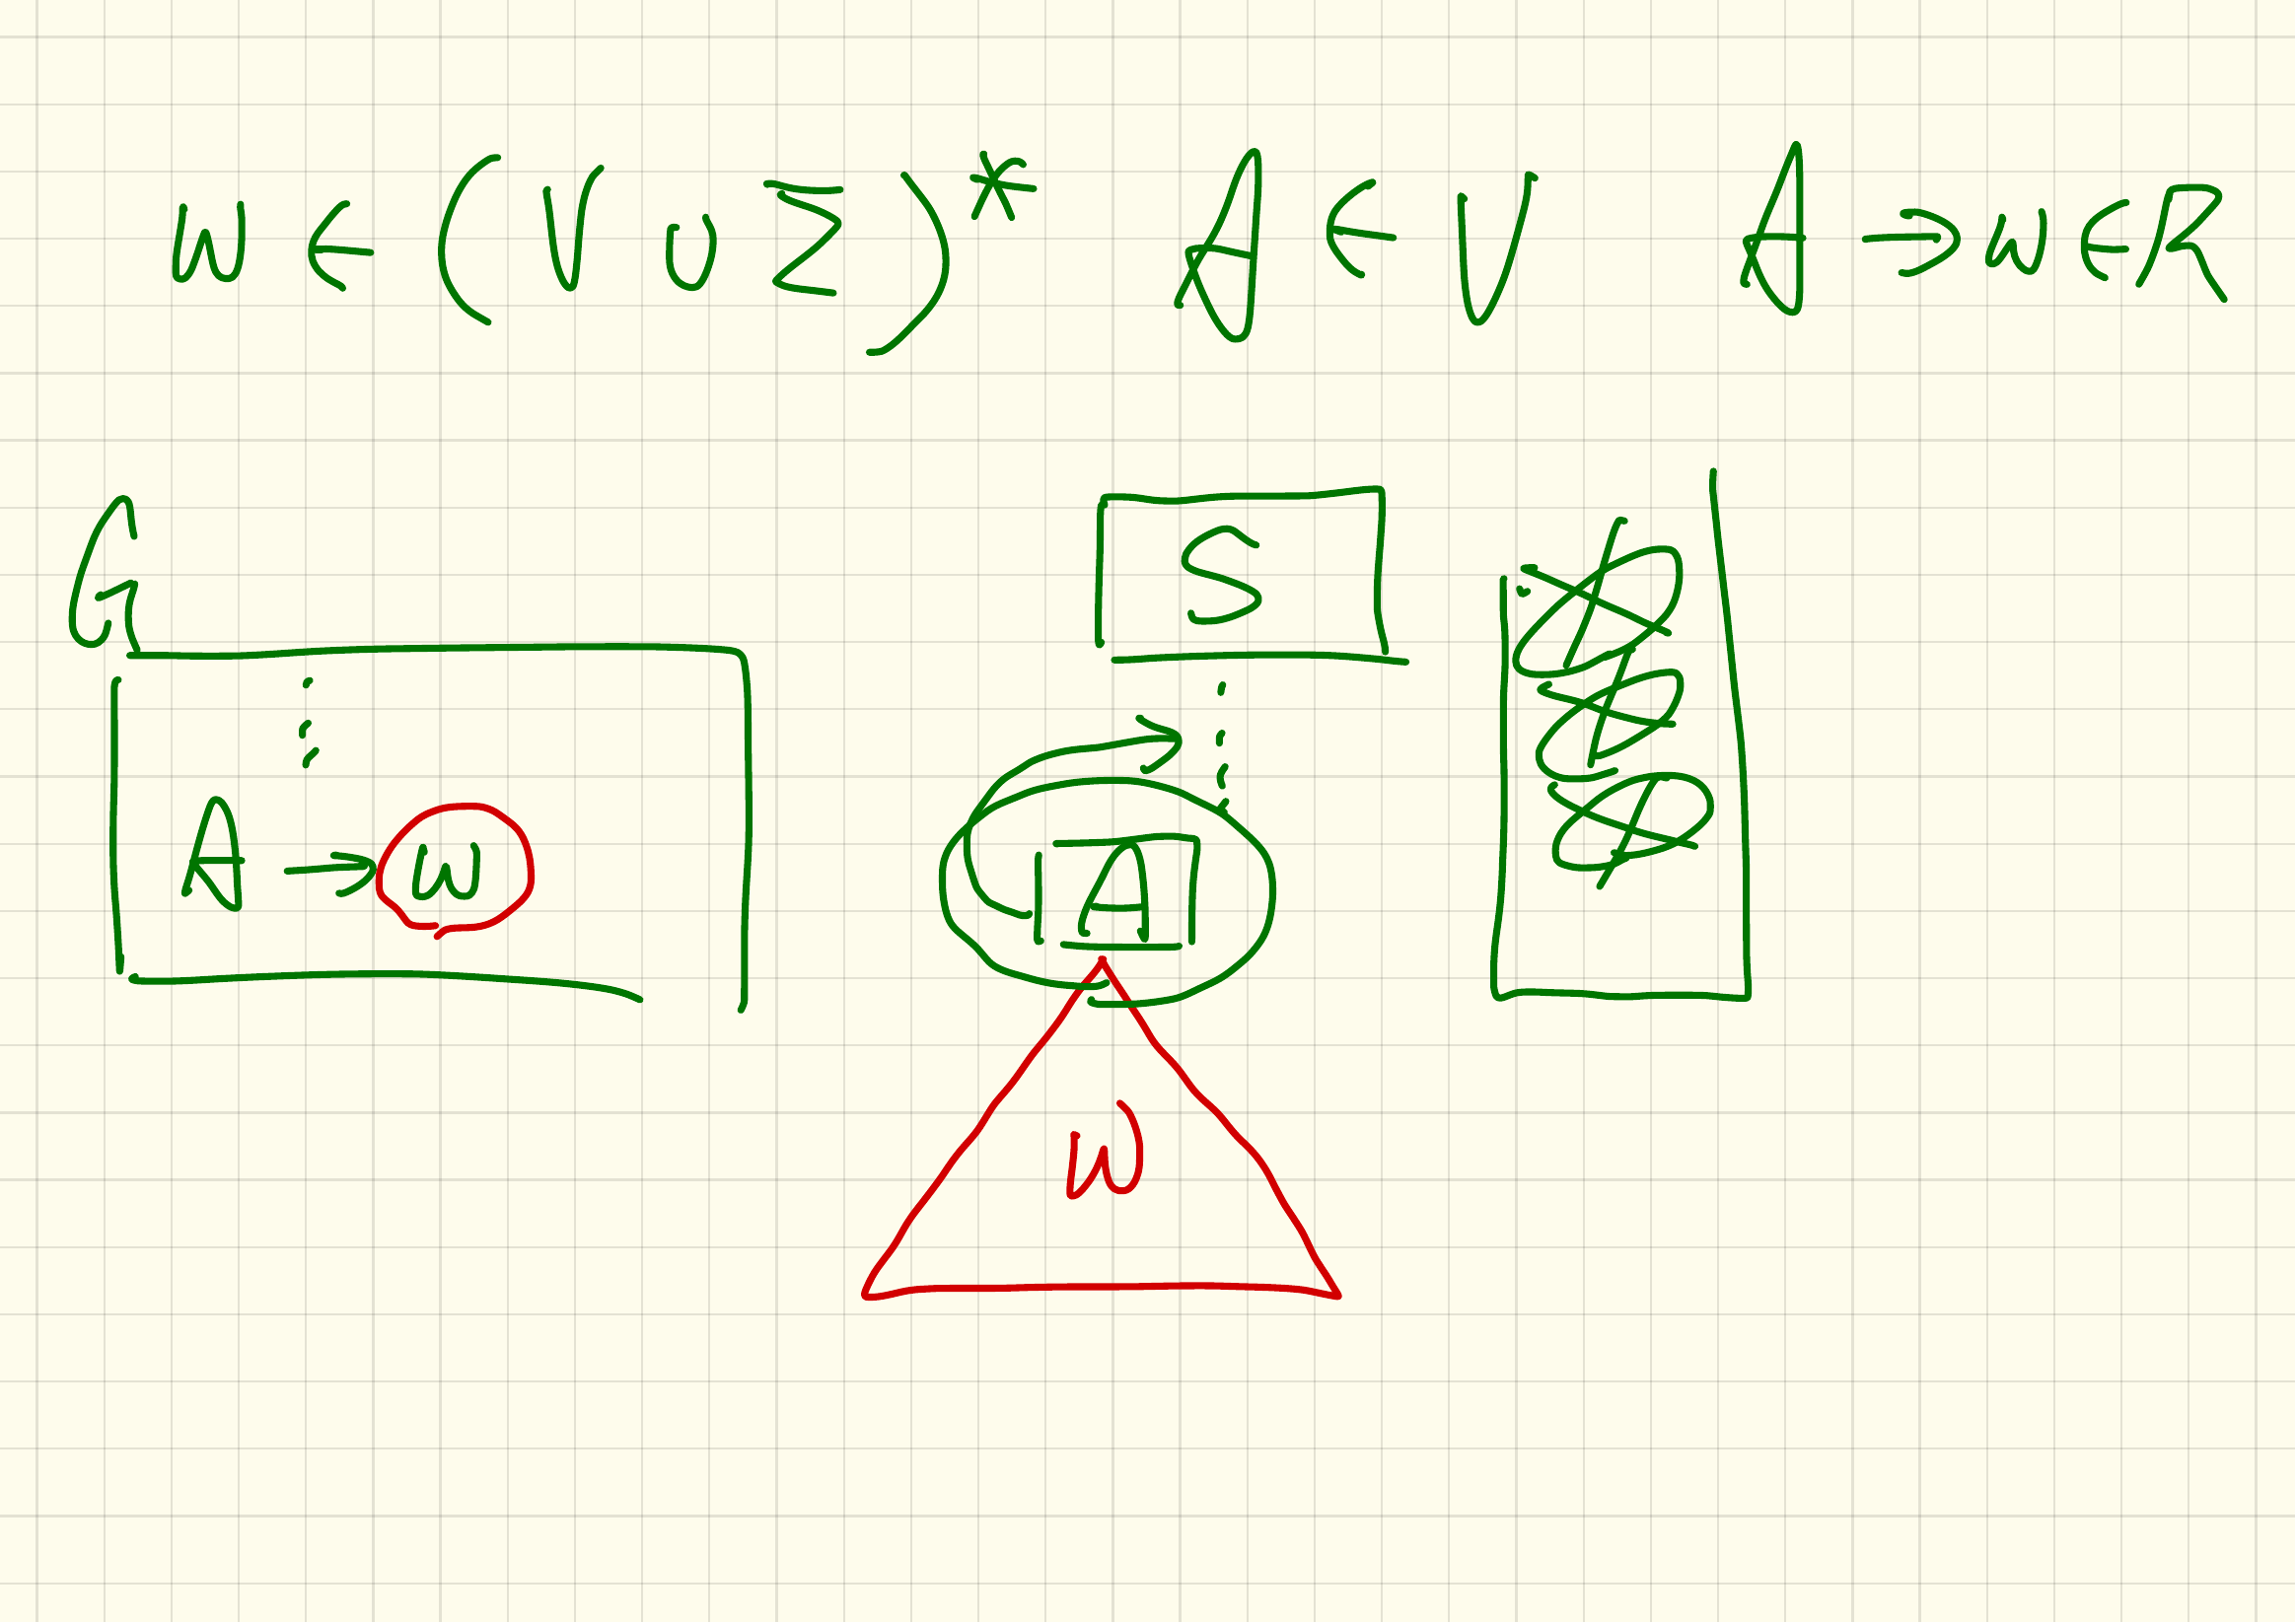 w ∈ (V ∪ Σ)* A ∈ V A → w ∈ R
G
S
A → w
A
w